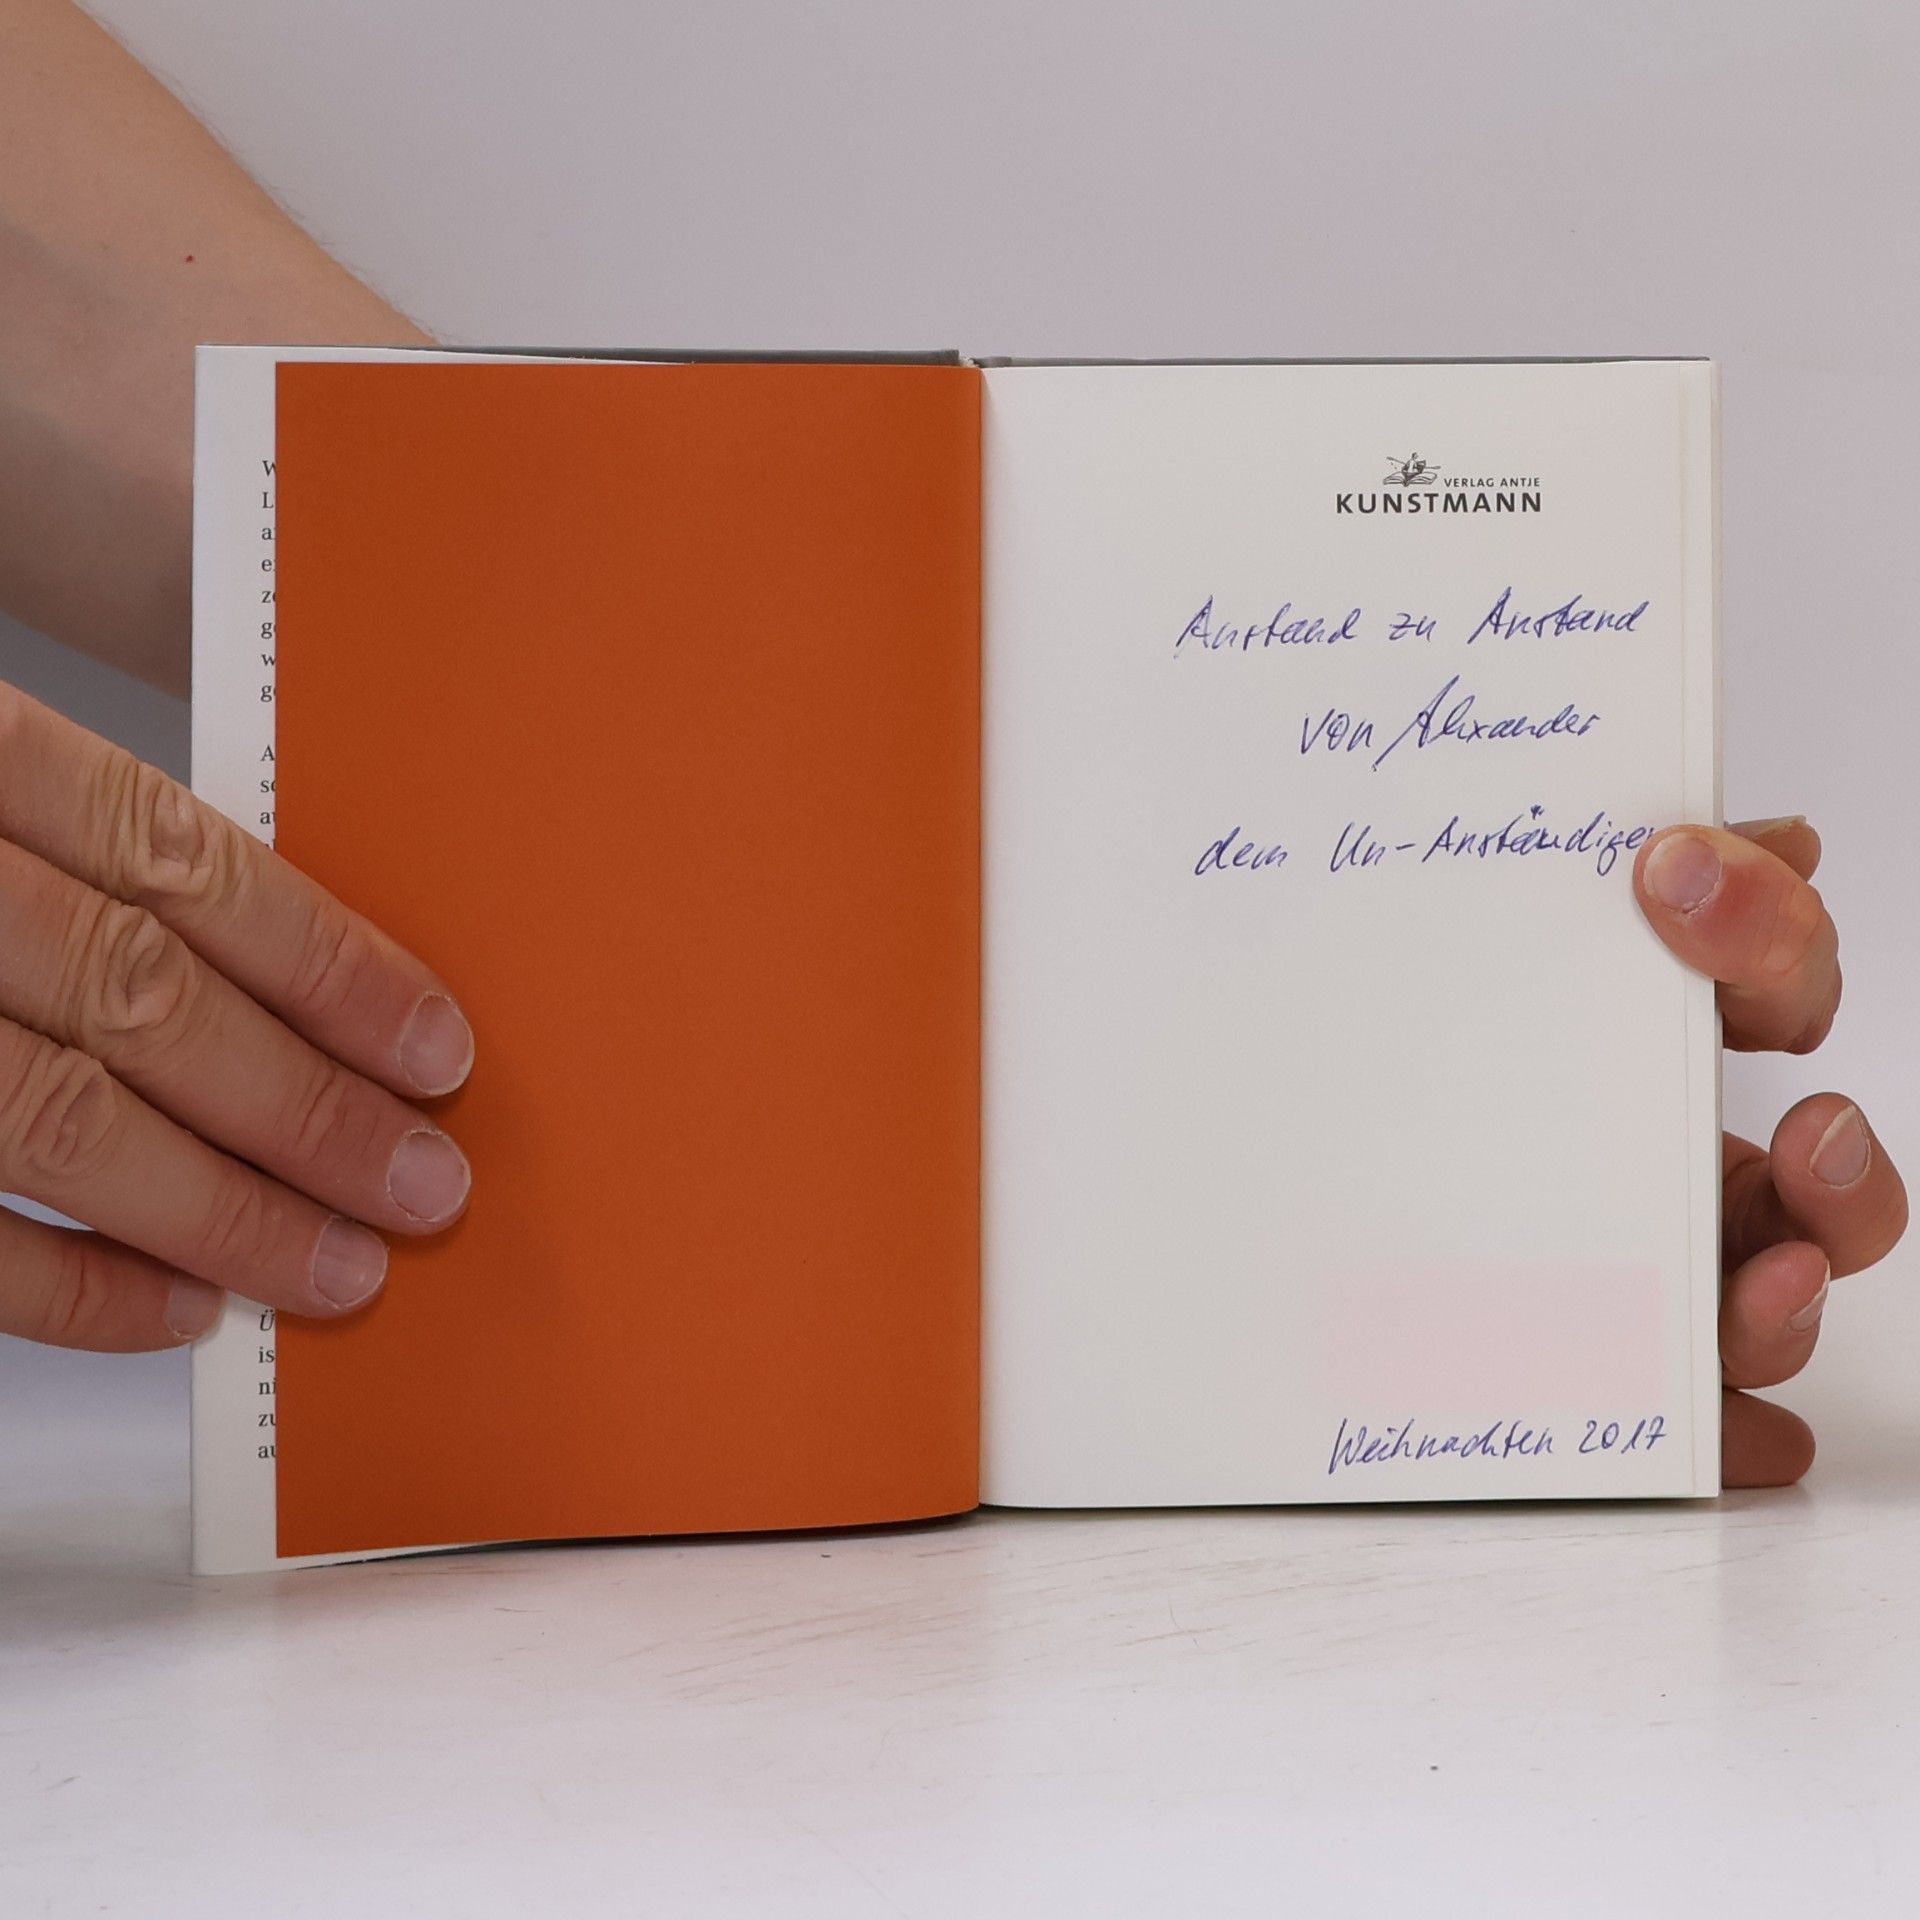 W
L
a
e
z
g
w
g
A
s
au
Ü
is
ni
zu
au
VERLAG ANTJE
KUNSTMANN
Anstand zu Anstand
von Alexander
dem Un-Anständigen
Weihnachten 2017